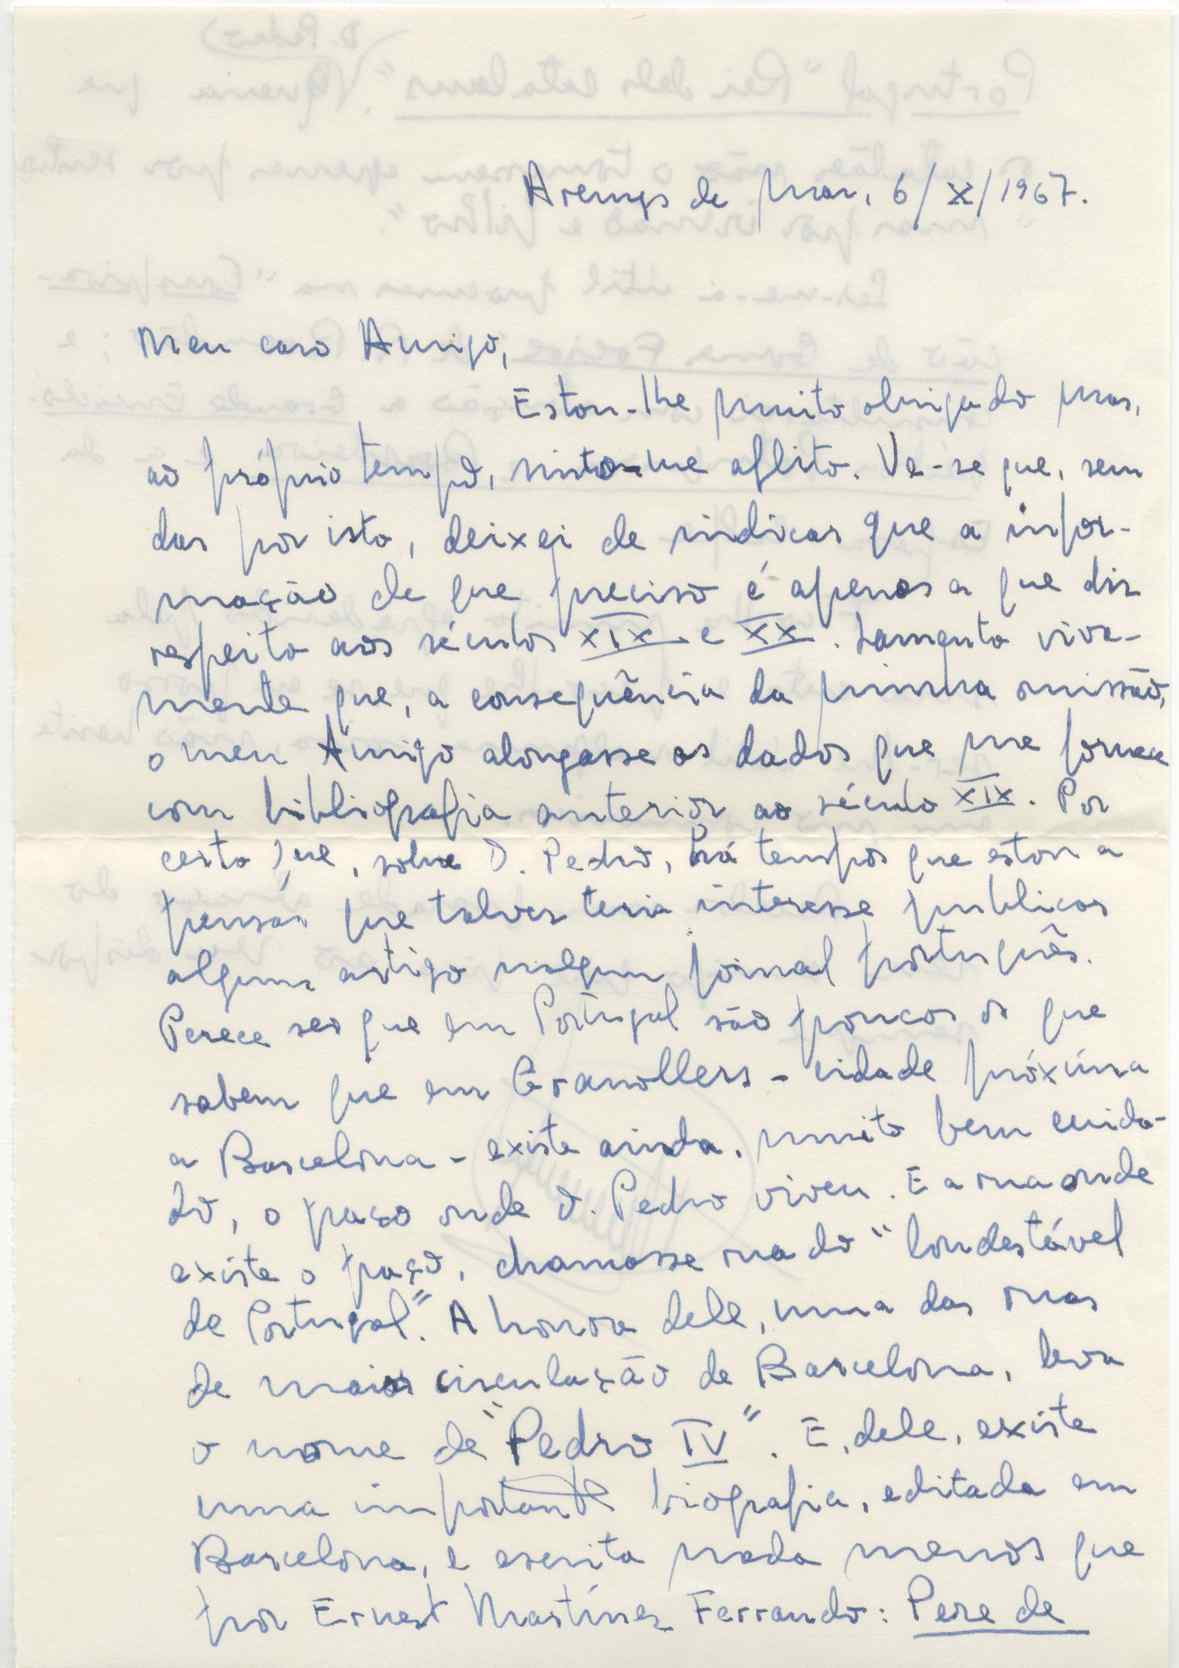 Arenys de Mar, 6/X/1967.
Meu caro Amigo,
Estou-lhe muito obrigado mas,
ao próprio tempo, sinto-me aflito. Ve-se que, sem
dar por isto, deixei de indicar que a infor-
mação de que preciso é apenas a que diz
respeito aos séculos XIX e XX. Lamento viva-
mente que, a consequência da minha omissão,
o meu Amigo alongasse os dados que me fornece
com bibliografia anterior ao século XIX. Por
certo que, sobre D. Pedro, há tempos que estou a
pensar que talvez teria interesse publicar
algum artigo nalgum jornal português.
Perece ser que em Portugal são poucos os que
sabem que em Granollers - cidade próxima
a Barcelona - existe ainda, muito bem cuida-
do, o paço onde D. Pedro viveu. E a rua onde
existe o paço, chamasse rua do "Condestável
de Portugal". A honra dele, uma das ruas
de maior circulação de Barcelona, leva
o nome de "Pedro IV". E, dele, existe
uma importante biografia, editada em
Barcelona, e escrita nada menos que
por Ernest Martínez Ferrando: Pere de